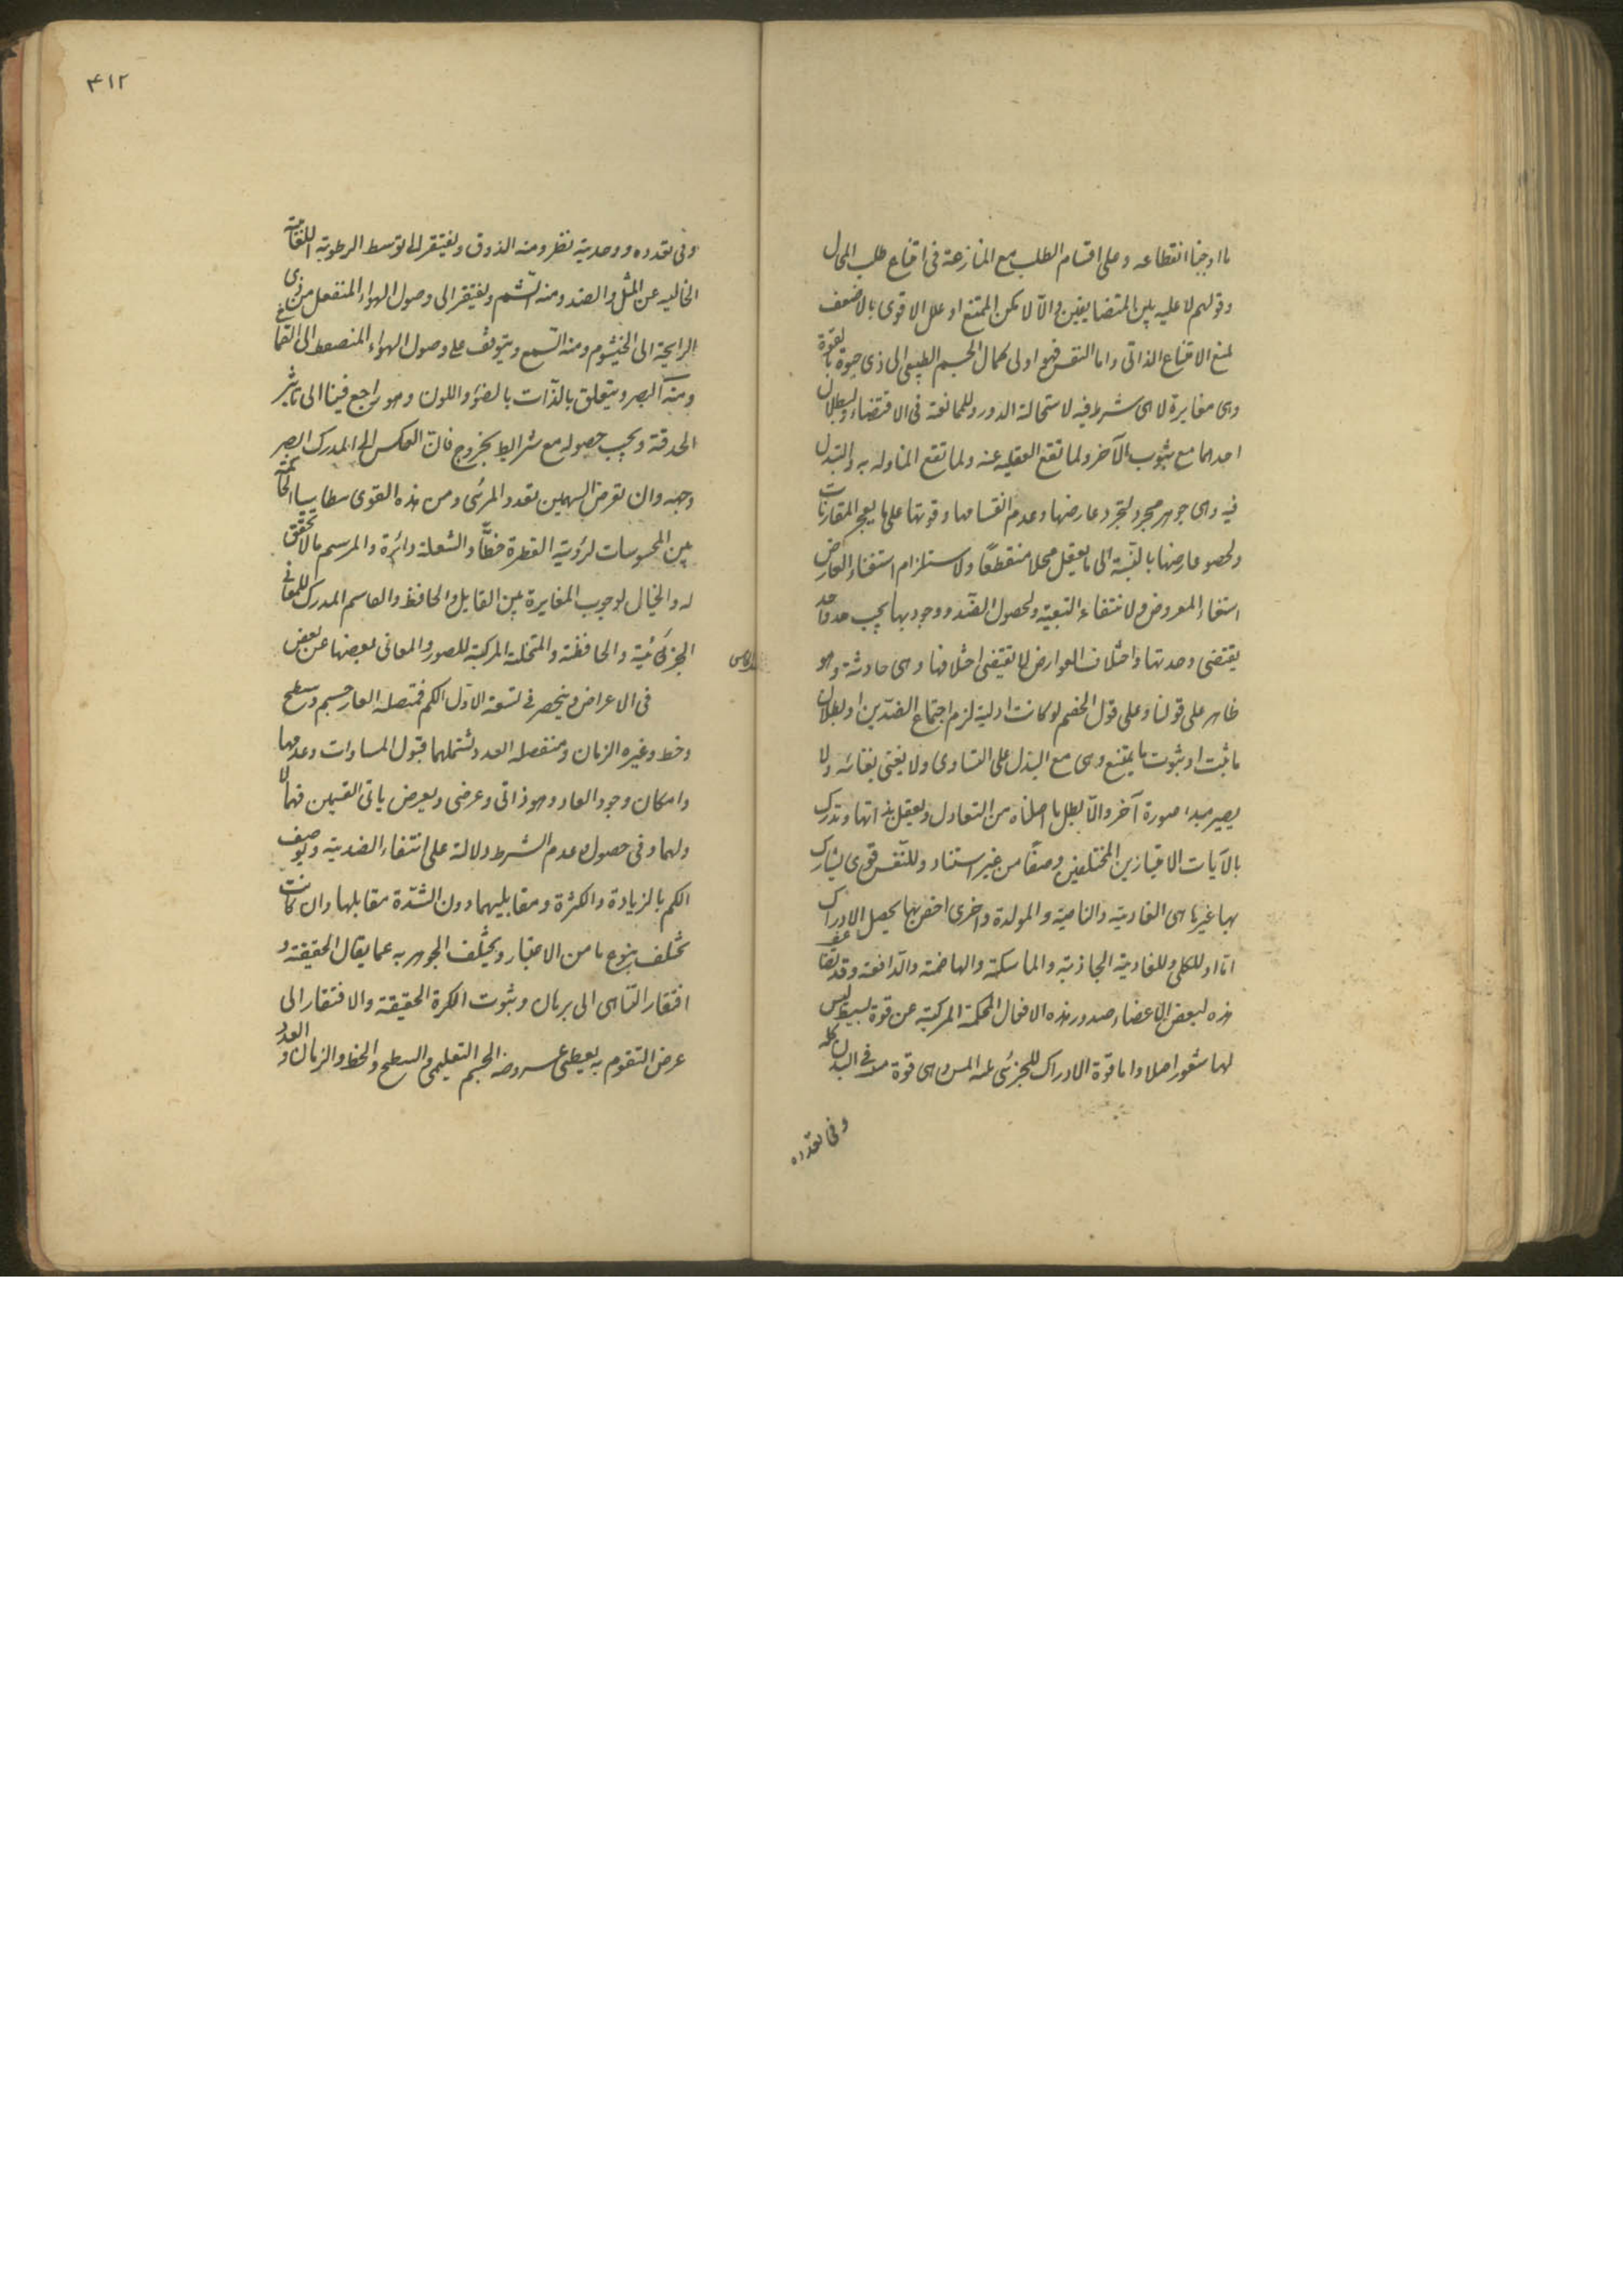 ما اوجبنا انقطاعه وعلى اقسام الطلب مع المنازعة فى امتناع طلب المحال
وقولهم لا عليه بين المتضايفين والا لا مكن الممتنع او علل الاقوى بالاضعف
لمنع الامتناع الذاتى واما النفس فهو اولى كمال الجسم الطبيعى الى ذى حيوة بالقوة
وهى مغايرة لاهى شرط فيه لاستحالة الدور وللممانعة فى الاقتضاء ولبطلان
احدهما مع ثبوت الآخر ولما تقع الغفلة عنه ولما تقع المناوله به والتبدل
فيه وهى جوهر مجرد لتجرد عارضها وعدم انقسامها وقوتها على ما يعجز المقارنات
ولحصو عارضها بالنسبة الى ما يعقل محلا منقطعًا ولاستلزام استغناء العارض
استغناء المعروض ولانتفاء التبعية ولحصول الضد ودخولها تحت حد واحد
يقتضى وحدتها واختلاف العوارض لا يقتضى اختلافها وهى حادثة وهو
ظاهر على قولنا وعلى قول الخصم لو كانت ازلية لزم اجتماع الضدين او بطلان
ما ثبت او ثبوت ما يمتنع وهى مع البدن على التساوى ولا يفنى بفنائه ولا
يصير مبداء صورة آخر والا بطل ما اصلناه من التعادل ويعقل بذاتها وتدرك
بالآلات الامتياز بين المختلفين وضعًا من غير استناد وللنفس قوى يشارك
بها غيرها هى الغاذية والنامية والمولدة واخرى اخص بها يحصل الادراك
اما او للكلى وللغاذية الجاذبة والماسكة والهاضمة والدافعة وقد تتضاعف
هذه لبعض الاعضاء صدور هذه الافعال المحكمة المركبة عن قوة بسيطة ليس
لها شعور اصلا واما قوة الادراك للجزئى فمنه اللمس وهى قوة فى البدن كله
وفى تعدده
٤١٢
وفى تعدده ووحدته نظر ومنه الذوق ويفتقر الى توسط الرطوبة اللعابية
الخاليه عن المثل والضد ومنه الشم ويفتقر الى وصول الهواء المنفعل من ذى
الرايحة الى الخيشوم ومنه السمع ويتوقف على وصول الهواء المنضغط الى الصماخ
ومنه البصر ويتعلق بالذات بالضوء واللون وهو راجع فينا الى تاثر
الحدقة ويجب حصوله مع شرايط بخروج فان انعكس الى المدرك ابصر
وجهه وان تعرض السهمين تعدد المرئى ومن هذه القوى بنطاسيا الحاكمة
بين المحسوسات لرؤية القطرة خطًّا والشعلة دائرة والمرسم ما لا تحقق
له والخيال لوجوب المغايرة بين القابل والحافظ والوهم المدرك للمعانى
الجزئية والحافظة والمتخيلة المركبة للصور والمعانى بعضها عن بعض
فى الاعراض وينحصر فى تسعة الاول الكم فمتصله القار جسم وسطح
وخط وغيره الزمان ومنفصله العدد ويشملهما قبول المساوات وعدمها
وامكان وجود العاد وهو ذاتى وعرضى ويعرض ثانى القسمين فيهما لا
ولهما وفى حصول عدم الشرط دلالة على انتفاء الضدية ويوصف
الكم بالزيادة والكثرة ومقابليهما دون الشدة مقابلها وان كانت
تختلف بنوع ما من الاعتبار ويختلف الجوهر به عما يقال الحقيقة و
افتقار التناهى الى برهان وثبوت الكرة الحقيقة والافتقار الى
عرض التقوم به يعطى عروضه الجسم التعليمى والسطح والخط والزمان والعدد